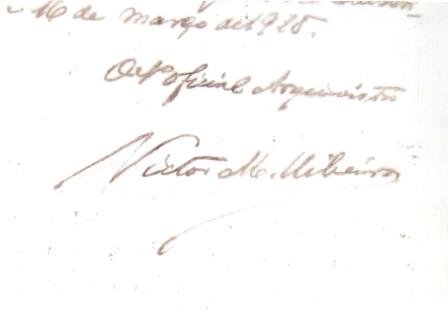 16 de março de 1925.
Oficial Arquivista
Victor M. Ribeiro